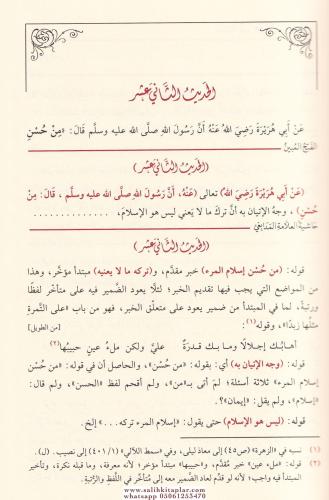 الحَدِيثُ الثَّانِيَ عَشَرَ
عَنْ أَبِي هُرَيْرَةَ رَضِيَ اللهُ عَنْهُ أَنَّ رَسُولَ اللهِ صلَّى الله عليه وسلَّم قَالَ: «مِنْ حُسْنِ
الفتح المبين
(الحَدِيثُ الثَّانِيَ عَشَرَ)
(عَنْ أَبِي هُرَيْرَةَ رَضِيَ اللهُ) تعالى (عَنْهُ، أَنَّ رَسُولَ اللهِ صلَّى الله عليه وسلَّم ، قَالَ: مِنْ
حُسْنِ) ، وجهُ الإتيان به أنَّ تركَ ما لا يَعني ليس هو الإسلامَ، . . . . . . . . . . . . . .
حاشية العلامة المدابغي
(الحَدِيثُ الثَّانِيَ عَشَرَ)
قوله: (من حُسْن إسلام المرء) خبر مقدَّم، و(تركه ما لا يعنيه) مبتدأ مؤخَّر، وهذا
من المواضع التي يجب فيها تقديم الخبر؛ لئلا يعود الضمير فيه على متأخّر لفظًا
ورتبةً، لما في المبتدأ من ضمير يعود على متعلّق الخبر، فهو من باب «على التَّمرة
مثلُها زبدًا»، وقوله(١): [من الطويل]
أهابُكِ إجلالًا وما بكِ قدرةٌ عليَّ ولكن ملءُ عينٍ حبيبُها(٢)
قوله: (وجه الإتيان به) أي: بقوله: «من حُسْن»، والحاصل أن في قوله: «من حُسْن
إسلام المرء» ثلاثة أسئلة؛ لمَ أتى بـ«من»، ولم أقحم لفظ «الحسن»، ولم قال:
«إسلام»، ولم يقل: «إيمان»؟.
قوله: (ليس هو الإسلام) حتى يقول: «إسلام المرء تركه . . . » إلخ.
(١) نسبه في «الزهرة» (ص٤٥) إلى معاذ ليلى، وفي «سمط اللآلي» (٤٠١/١) إلى نصيب. (ل).
(٢) قوله: «ملء عين» خبر مُقدَّم، و«حبيبها» مبتدأ مؤخر؛ لأنه معرفة، وما قبله نكرة، وتأخير
المبتدأ فيه واجب؛ لأنه لو قُدِّم لعاد الضمير معه إلى متأخِّر في اللَّفظ والرُّتبة.
www.salihkitaplar.com
whatsapp 05061253470